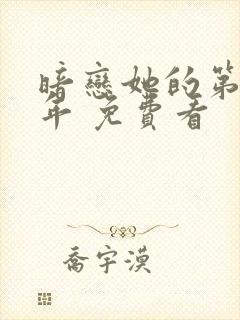 暗戀她的第
年 免費看
喬宇漠